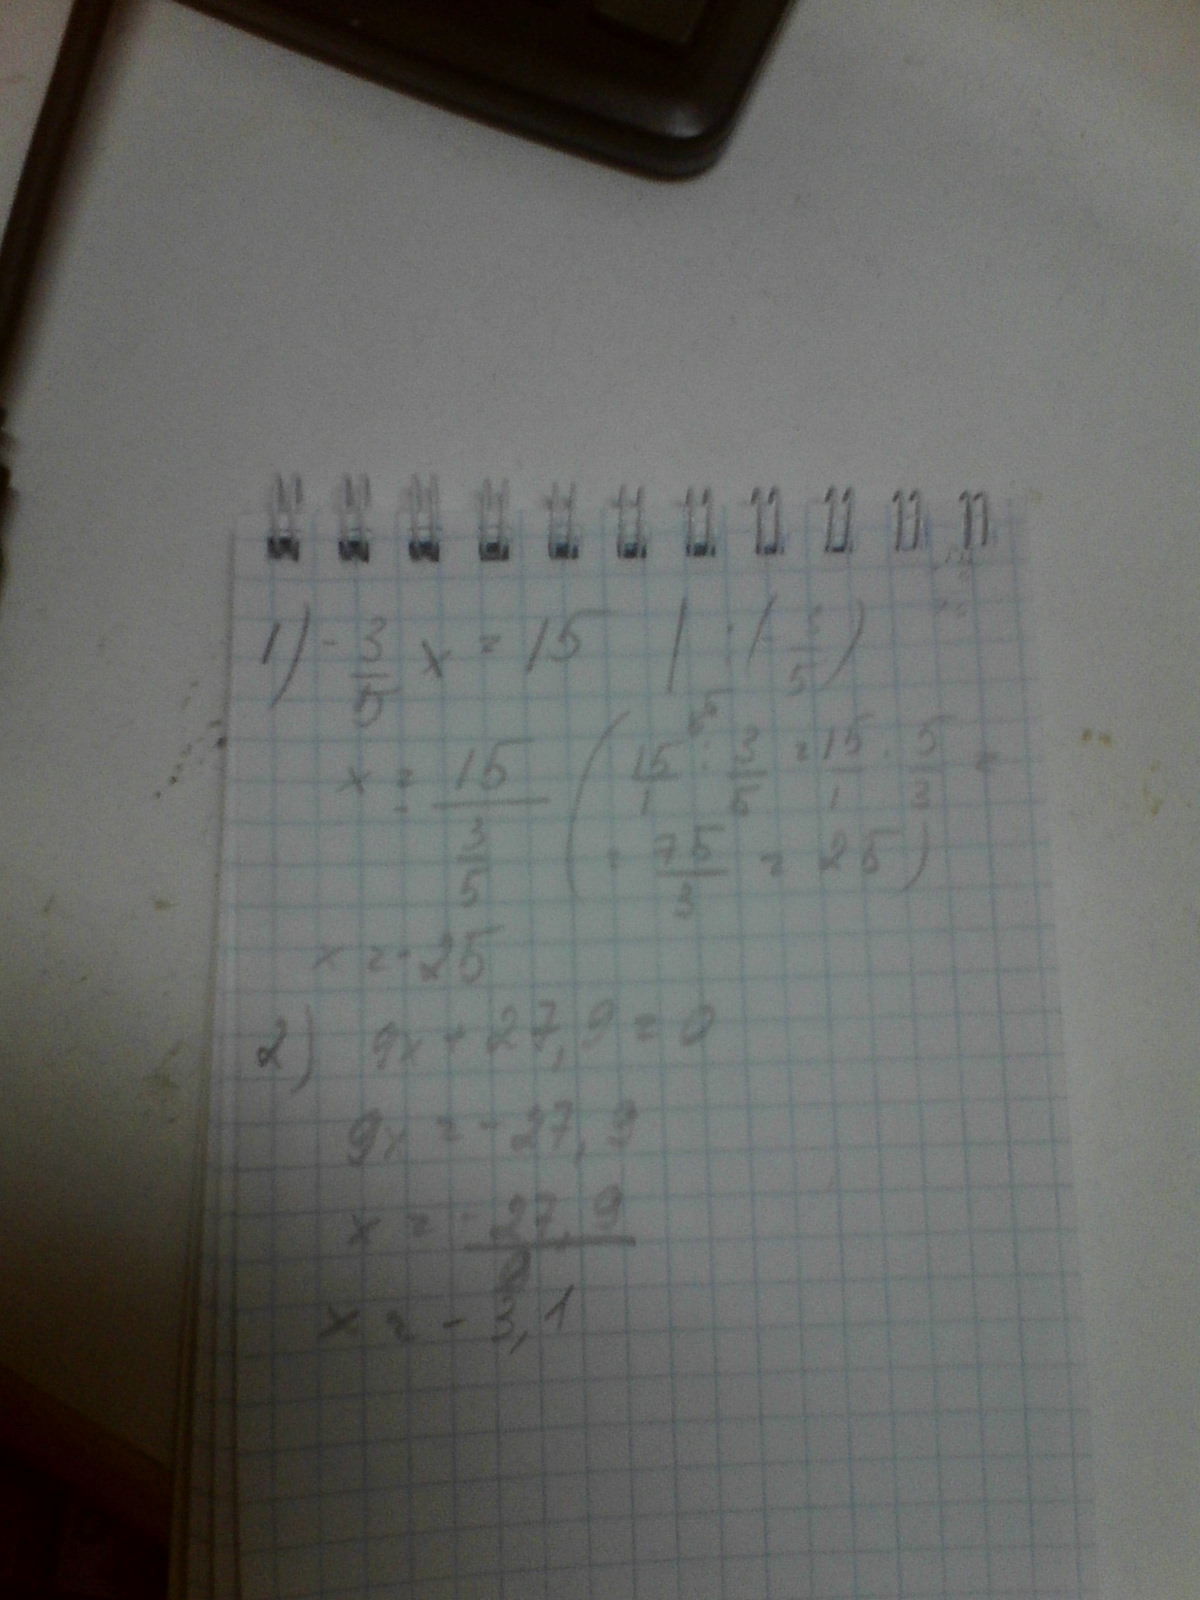 1) - 3/5 x = 15 | : (- 3/5)
x = - 15 / 3/5 ( 15/1 : 3/5 = 15/1 · 5/3 =
= 75/3 = 25 )
x = - 25
2) 9x + 27,9 = 0
9x = - 27,9
x = - 27,9 / 9
x = - 3,1